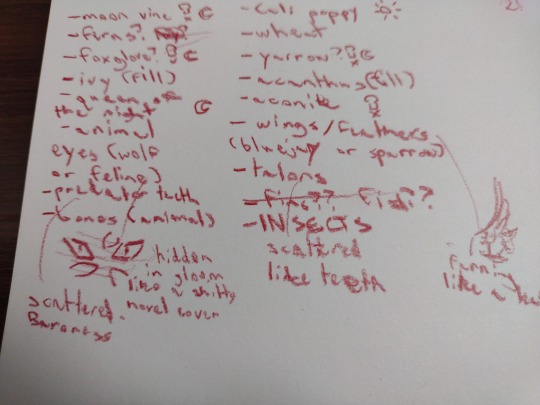 - moon vine
- ferns?
- foxglove?
- ivy (fill)
- queen of
the night
- animal
eyes (wolf
or feline)
- predator teeth
- bones (animal)
hidden
in gloom
like a shitty
novel cover
scattered.
- cali poppy
- wheat
- yarrow?
- acanthus (fill)
- aconite
- wings/feathers
(bluejay or sparrow)
- talons
- fins?? Fish?
- INSECTS
scattered
like teeth
running
like a